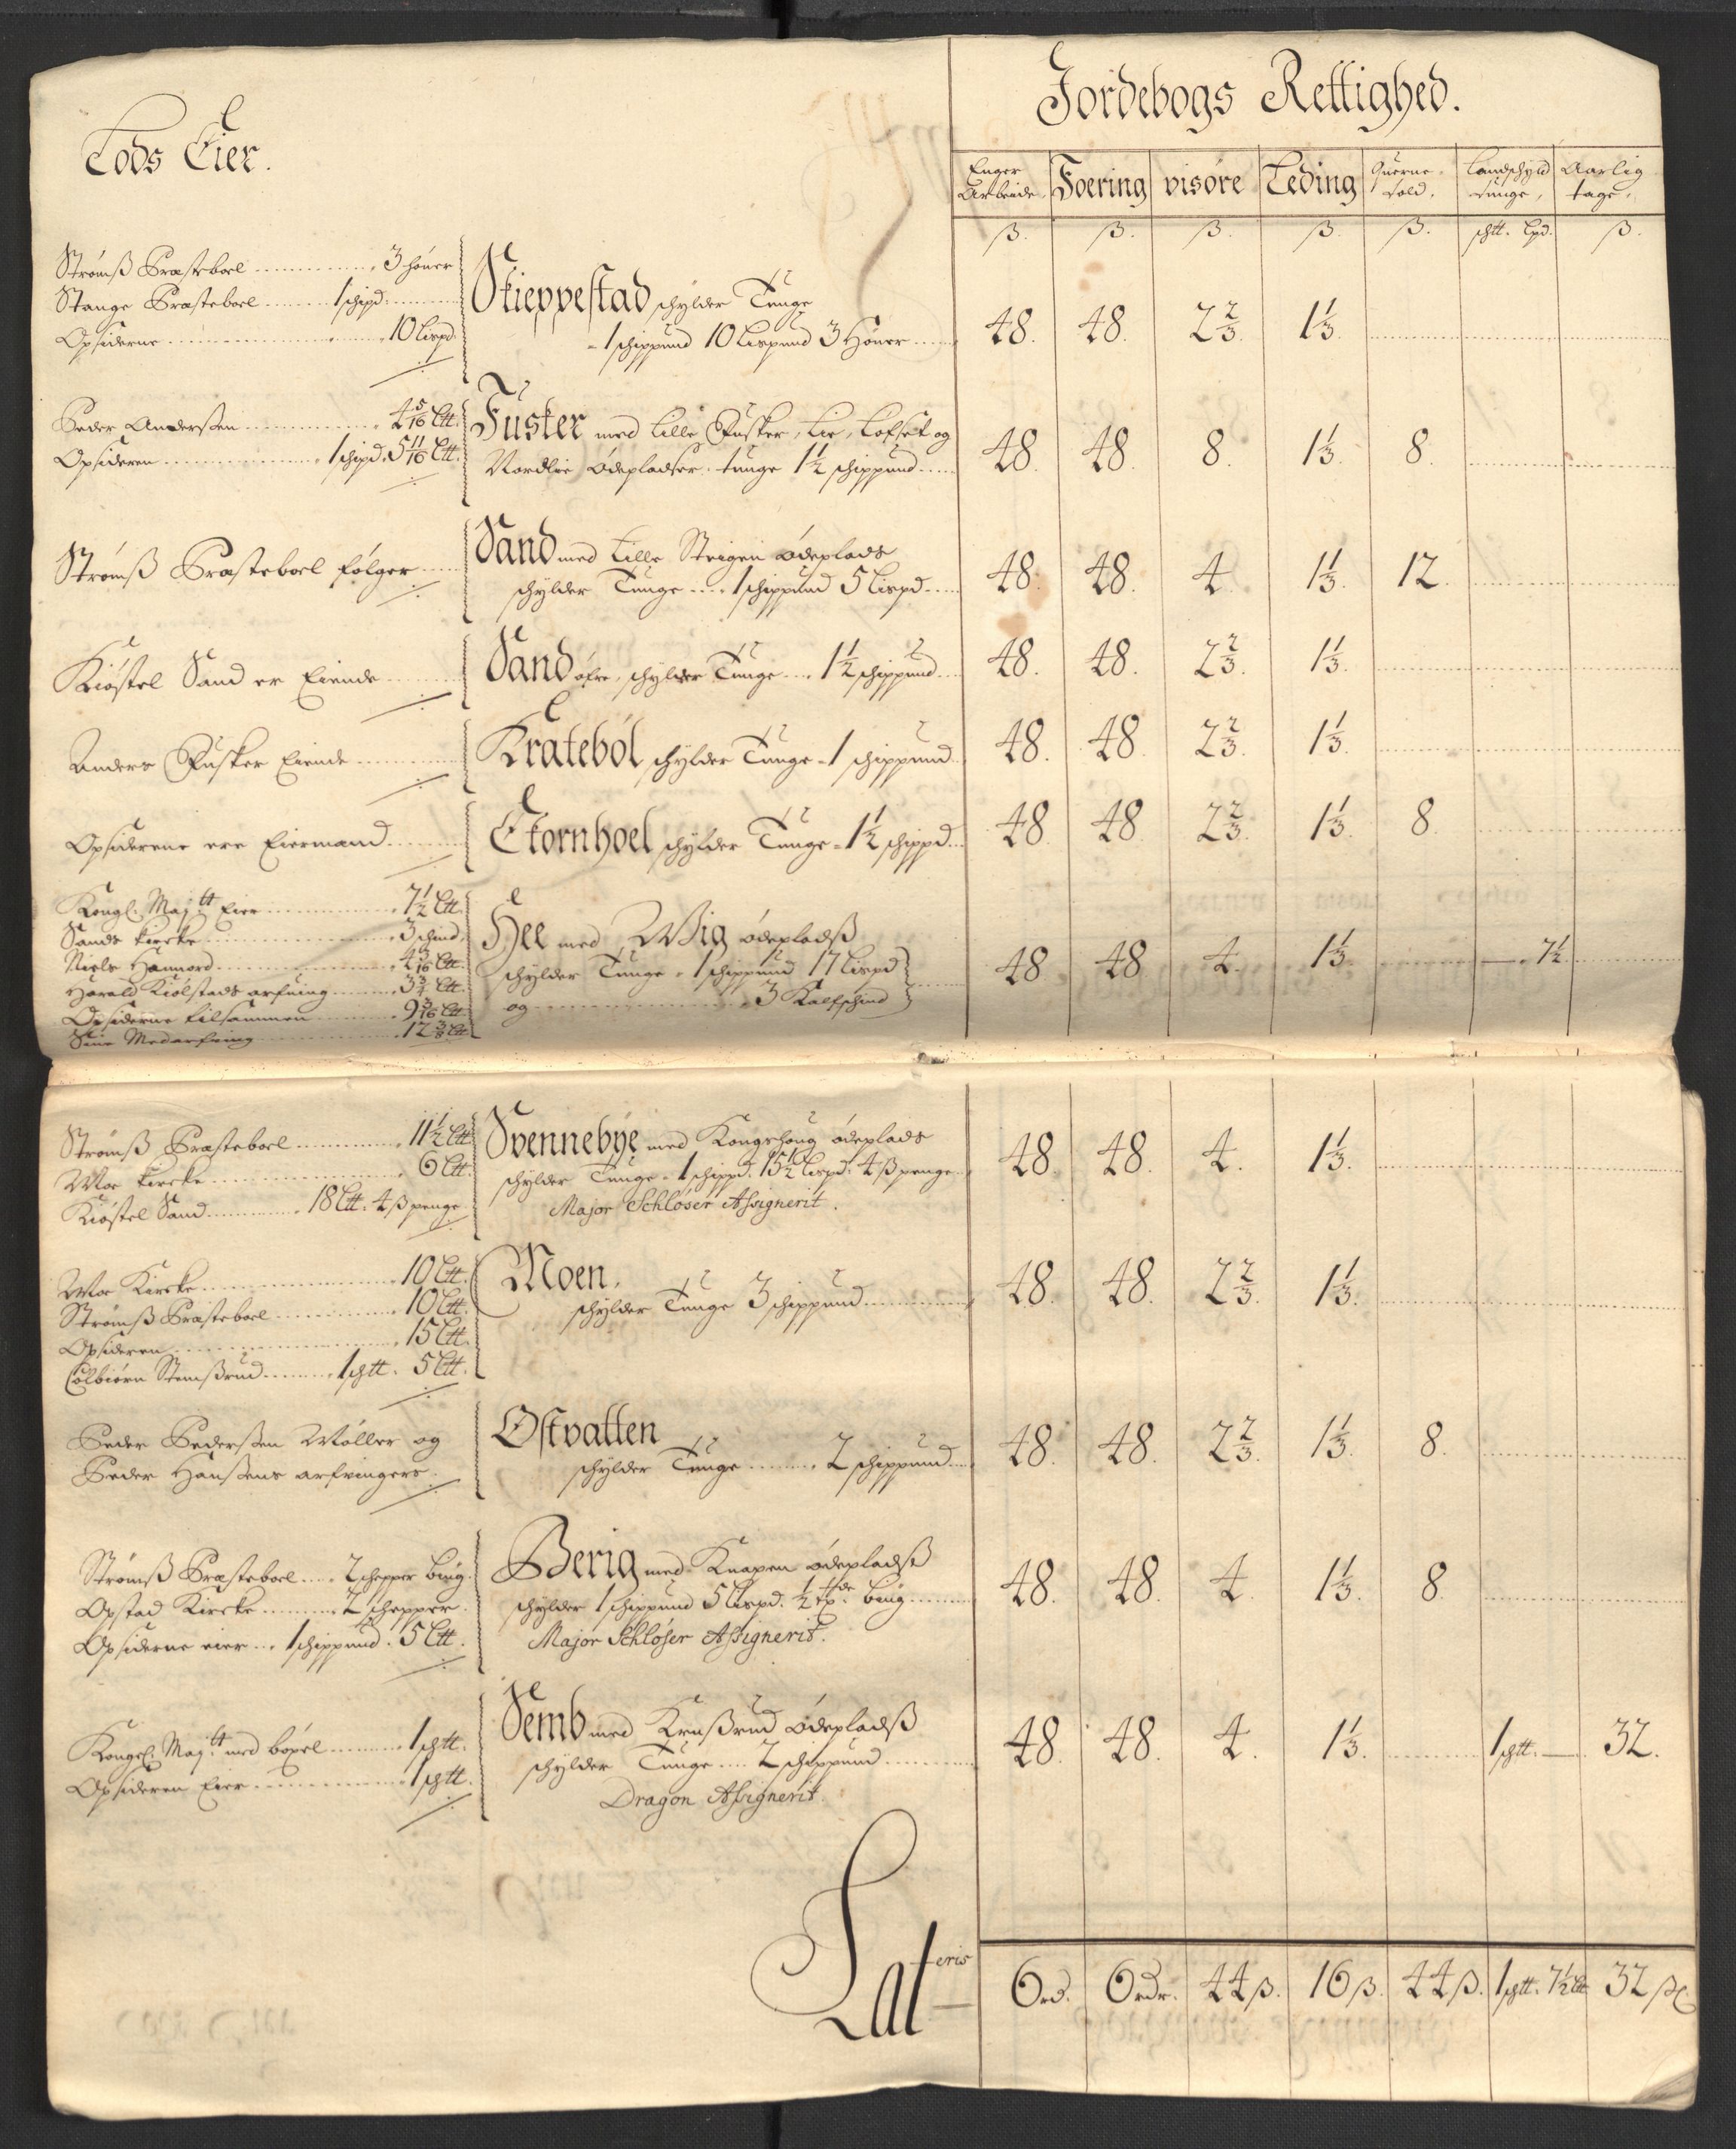 Jordebogs Rettighed.
Lods Eier.
Enger Arbeide. Foering visøre Leding Querne told. Landschyld tunge, Aarlig tage.
ß. ß. ß. ß. ß. schtt. Lpd. ß.
Strømß Præsteboel 3 høuer
Stange Præsteboel 1 schipd.
Opsiderne 10 Lispd.
Skieppestad schylder Tunge
1 schippund 10 Lispund 3 Høuer 48. 48. 2 2/3. 1 1/3.
Peder Anderßen 4 5/16 Ltt.
Opsideren 1 schipd. 5 11/16 Ltt.
Fusker med Lille Fusker, Lie, Lofset og
Nordlie Ødepladser. tunge 1 1/2 schippund 48. 48. 8. 1 1/3. 8.
Strømß Præsteboel følger
Sand med Lille Strigen ødeplads
schylder Tunge 1 schippund 5 Lispd. 48. 48. 4. 1 1/3. 12.
Kiøstel Sand er Eiende
Sand øfre, schylder Tunge 1 1/2 schippund 48. 48. 2 2/3. 1 1/3.
Anders Fusker Eiende
Kratebøl schylder Tunge 1 schippund 48. 48. 2 2/3. 1 1/3.
Opsiderne ere Eiermænd
Ekornhoel schylder Tunge 1 1/2 schippd. 48. 48. 2 2/3. 1 1/3. 8.
Kongl. Maj.tt Eier 7 1/2 Ltt.
Sands Kircke 3 schind.
Niels Hannord 4 5/16 Ltt.
Harald Kiølstads arfuing 3 3/4 Ltt.
Opsiderne tilsammen 9 3/16 Ltt.
Sine Medarfuing 12 3/8 Ltt.
Hee med Wiig ødepladß
schylder Tunge 1 schippund 17 Lispd
og 3 Kalfschind 48. 48. 4. 1 1/3. 7 1/2
Strømß Præsteboel 11 1/2 Ltt.
Moe Kircke 6 Ltt.
Kiøstel Sand 18 Ltt. 4 ß penge
Svennebÿe med Kongshoug ødeplads
schylder Tunge 1 schippd. 15 1/2 Lispd. 4 ß penge 48. 48. 4. 1 1/3.
Major Schløser Assignerit.
Moe Kircke 10 Ltt.
Strømß Præsteboel 10 Ltt.
Opsideren 15 Ltt.
Colbiørn Stemßrud 1 schtt. 5 Ltt.
Moen.
schylder Tunge 3 schippund 48. 48. 2 2/3. 1 1/3.
Peder Pederßen Møller og
Peder Hanßens arfvingers.
Østvatten
schylder Tunge 2 schippund 48. 48. 2 2/3. 1 1/3. 8.
Strømß Præsteboel 2 schepper biug.
Opstad Kircke 2 schepper.
Opsiderne eier 1 schippund. 5 Ltt.
Berig med Knapen ødepladß
schylder 1 schippund 5 Lispd. 1/2 tde biug 48. 48. 4. 1 1/3. 8.
Major Schløser Assignerit.
Kongel: Maj.tt med bøxel 1 schtt.
Opsideren Eier 1 schtt.
Semb med Knußrud ødepladß
schylder Tunge 2 schippund 48. 48. 4. 1 1/3. 1 schtt. 32.
Dragon Assignerit.
Lateris 6 rd. 6 rdr. 44 ß. 16 ß. 44 ß. 1 schtt. 7 1/2 Ltt 32 ß